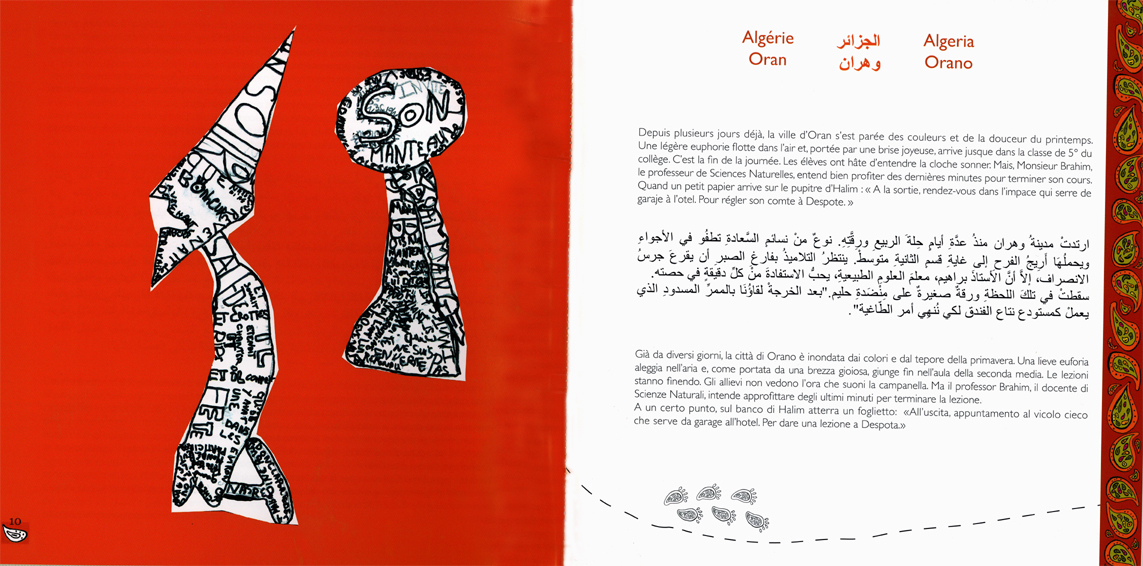 SON
MANTEAU
ET
FETE
10
Algérie
Oran
الجزائر
وهران
Algeria
Orano
Depuis plusieurs jours déjà, la ville d'Oran s'est parée des couleurs et de la douceur du printemps.
Une légère euphorie flotte dans l'air et, portée par une brise joyeuse, arrive jusque dans la classe de 5° du
collège. C'est la fin de la journée. Les élèves ont hâte d'entendre la cloche sonner. Mais, Monsieur Brahim,
le professeur de Sciences Naturelles, entend bien profiter des dernières minutes pour terminer son cours.
Quand un petit papier arrive sur le pupitre d'Halim : « A la sortie, rendez-vous dans l'impace qui serre de
garaje à l'otel. Pour régler son comte à Despote. »
ارتدتْ مدينةُ وهران منذُ عدَّةِ أيامٍ حِلةَ الربيعِ ورِقَّتِهِ. نوعٌ منْ نسائمِ السَّعادةِ تطفُو في الأجواءِ
ويحملُهَا أريجُ الفرحِ إلى غايةِ قسمِ الثانيةِ متوسطْ. ينتظرُ التلاميذُ بفارغِ الصبرِ أن يقرعَ جرسُ
الانصراف، إلاَّ أنَّ الأستاذَ براهيم، معلمَ العلومِ الطبيعيةِ، يحبُّ الاستفادةَ منْ كلِّ دقيقةٍ في حصته.
سقطتْ في تلكَ اللحظةِ ورقةٌ صغيرةٌ على مِنْضَدةِ حليم."بعد الخرجةِ لقاؤُنَا بالممرِّ المسدودِ الذي
يعملْ كمستودع نتاع الفندق لكي نُنهي أمر الطّاغية".
Già da diversi giorni, la città di Orano è inondata dai colori e dal tepore della primavera. Una lieve euforia
aleggia nell'aria e, come portata da una brezza gioiosa, giunge fin nell'aula della seconda media. Le lezioni
stanno finendo. Gli allievi non vedono l'ora che suoni la campanella. Ma il professor Brahim, il docente di
Scienze Naturali, intende approfittare degli ultimi minuti per terminare la lezione.
A un certo punto, sul banco di Halim atterra un foglietto: «All'uscita, appuntamento al vicolo cieco
che serve da garage all'hotel. Per dare una lezione a Despota.»